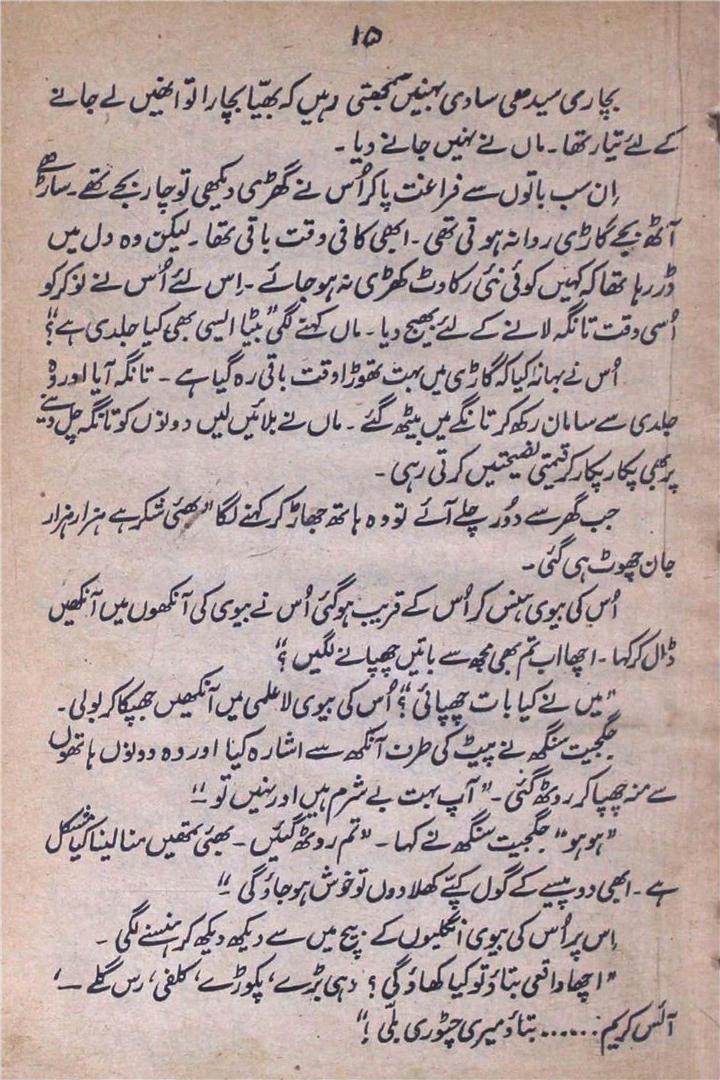 ۱۵
بچاری سیدھی سادی بہنیں سمجھتی رہیں کہ بھیّا بچارا تو انھیں لے جانے
کے لئے تیار تھا۔ ماں نے نہیں جانے دیا۔
اِن سب باتوں سے فراغت پا کر اُس نے گھڑی دیکھی تو چار بجے تھے۔ ساڑھے
آٹھ بجے گاڑی روانہ ہوتی تھی۔ ابھی کافی وقت باقی تھا۔ لیکن وہ دل میں
ڈر رہا تھا کہ کہیں کوئی نئی رکاوٹ کھڑی نہ ہو جائے۔ اِس لئے اُس نے نوکر کو
اُسی وقت تانگہ لانے کے لئے بھیج دیا۔ ماں کہنے لگی "بیٹا ایسی بھی کیا جلدی ہے؟"
اُس نے بہانہ کیا کہ گاڑی میں بہت تھوڑا وقت باقی رہ گیا ہے۔ تانگہ آیا اور وہ
جلدی سے سامان رکھ کر تانگے میں بیٹھ گئے۔ ماں نے بلائیں لیں دونوں کو تانگہ چل دینے
پر بھی پکار پکار کر قیمتی نصیحتیں کرتی رہی۔
جب گھر سے دُور چلے آئے تو وہ ہاتھ جھاڑ کر کہنے لگا "بھئی شکر ہے ہزار ہزار
جان چھوٹ ہی گئی۔
اُس کی بیوی ہنس کر اُس کے قریب ہو گئی اُس نے بیوی کی آنکھوں میں آنکھیں
ڈال کر کہا۔ اچھا اب تم بھی مجھ سے باتیں چھپانے لگیں؟"
"میں نے کیا بات چھپائی؟" اُس کی بیوی لا علمی میں آنکھیں جھپکا کر بولی۔
جگجیت سنگھ نے پیٹ کی طرف آنکھ سے اشارہ کیا اور وہ دونوں ہاتھوں
سے منہ چھپا کر روٹھ گئی۔ "آپ بہت بے شرم ہیں اور نہیں تو"
"ہو ہو" جگجیت سنگھ نے کہا۔ "تم روٹھ گئیں۔ بھئی تمھیں منا لینا کیا مشکل
ہے۔ ابھی دو پیسے کے گول گپّے کھلا دوں تو خوش ہو جاؤ گی"
اِس پر اُس کی بیوی انگلیوں کے بیچ میں سے دیکھ دیکھ کر ہنسنے لگی۔
"اچھا واقعی بتاؤ تو کیا کھاؤ گی؟ دہی بڑے، پکوڑے، کلفی، رس گلے ـــ،
آئس کریم ...... بتاؤ میری چٹوری بلّی!"